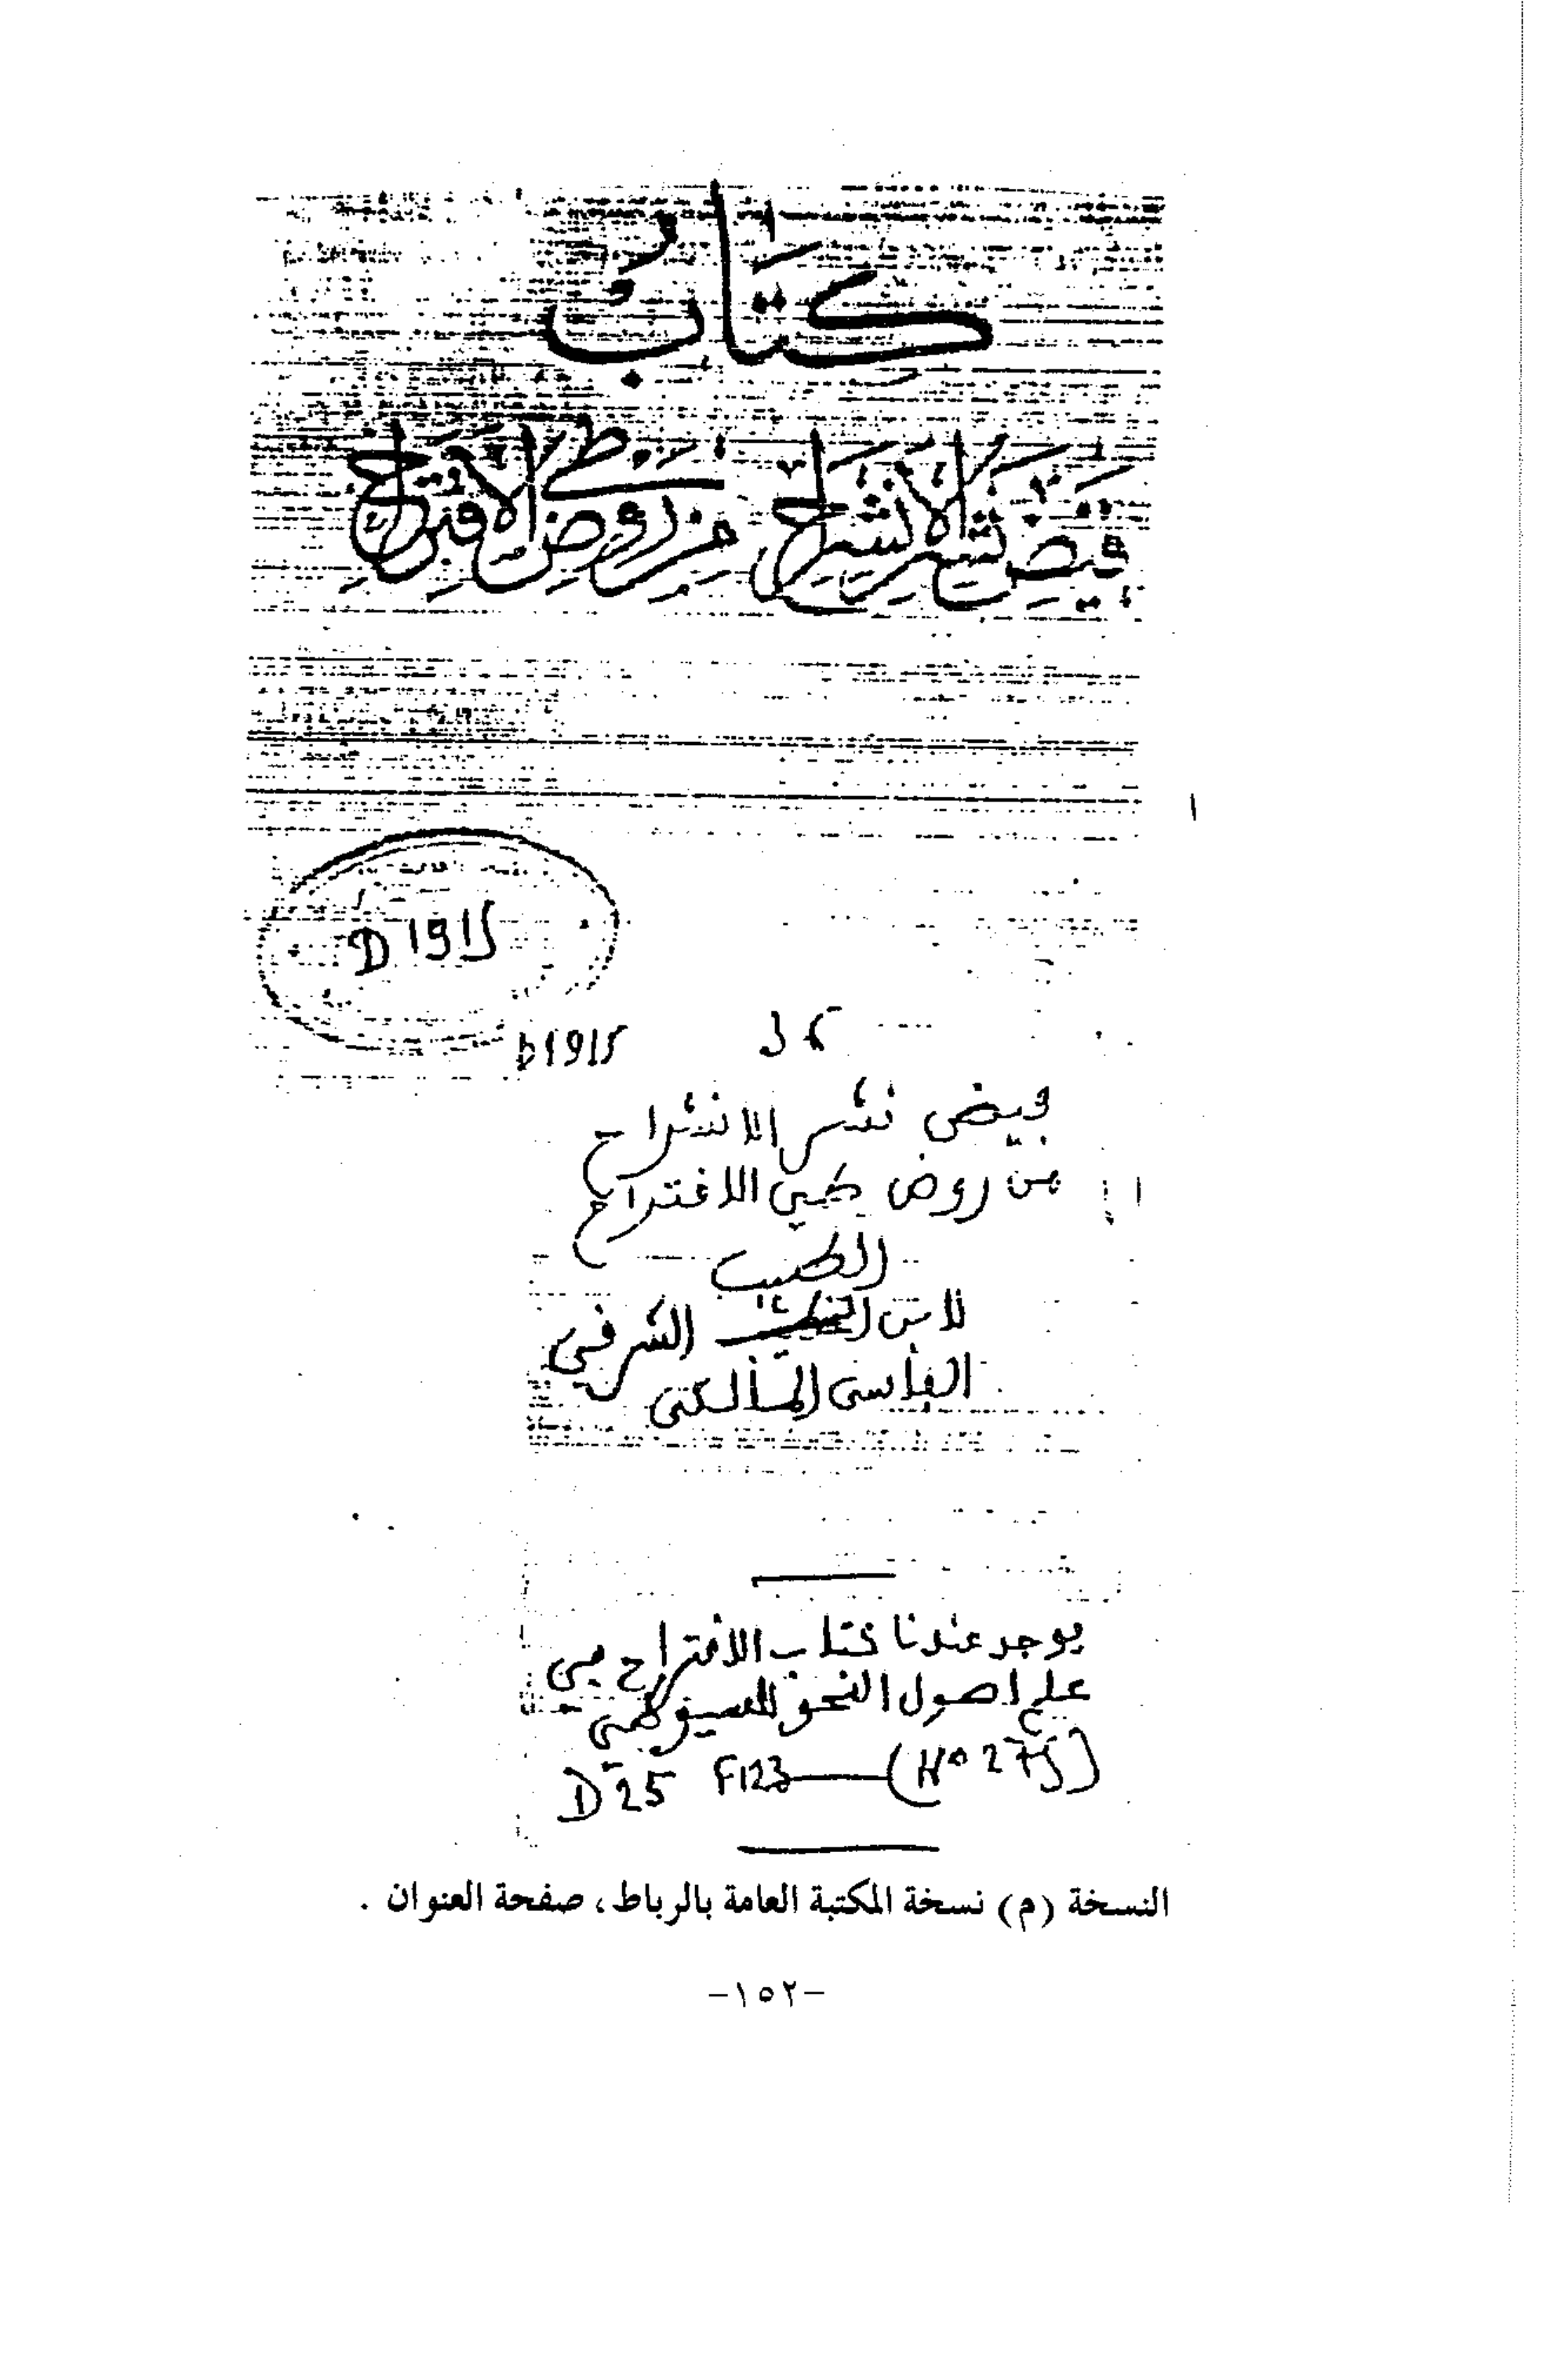 كتاب
فيض نشر الانشراح من روض طي الاقتراح
D 1915
D1915
36
فيض نشر الانشراح
من روض طي الاقتراح
الطيب
لابن الشرفي
الفاسي المالكي
يوجد عندنا كتاب الاقتراح في
علم اصول النحو للسيوطي
D 25 F123 — (N° 275)
النسخة (م) نسخة المكتبة العامة بالرباط، صفحة العنوان .
-١٥٢-